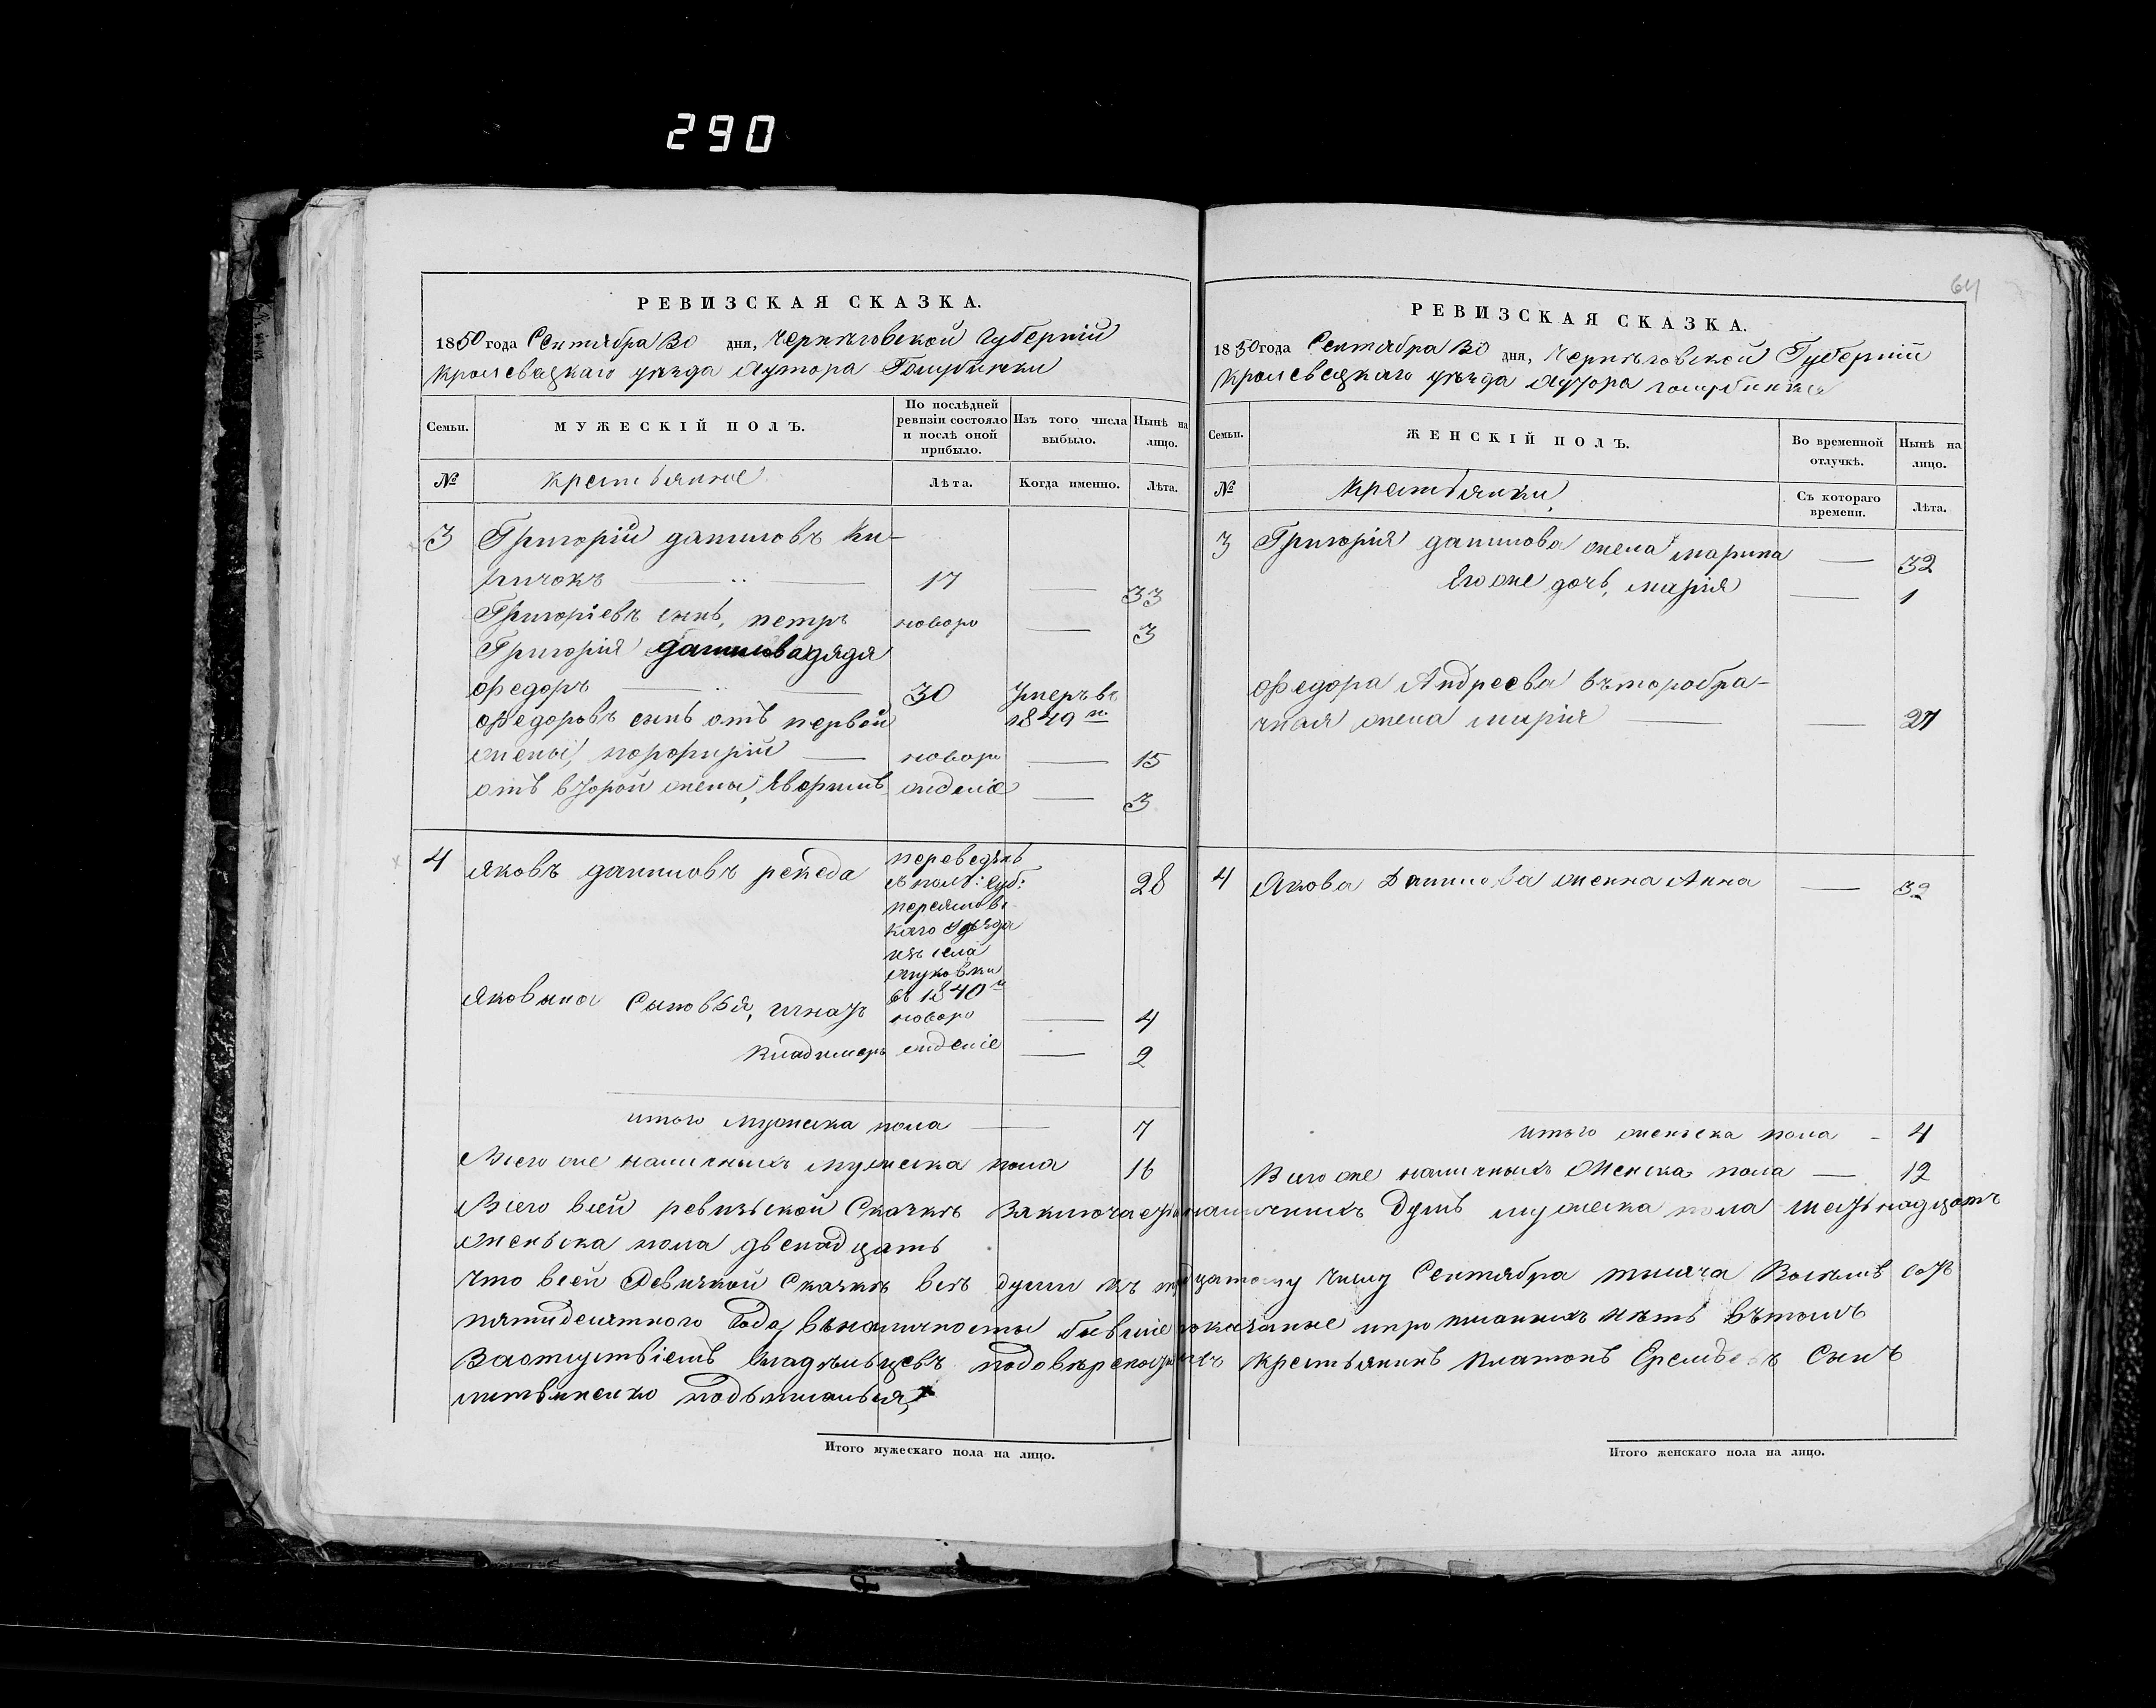 290
64
РЕВИЗСКАЯ СКАЗКА.
1850 года Сентября 30 дня, Черниговской Губерніи
Кролевецкаго уѣзда хутора Голубинки
Семьи. МУЖЕСКІЙ ПОЛЪ. По послѣдней ревизіи состояло и послѣ оной прибыло. Изъ того числа выбыло. Нынѣ на лицо.
№ крестьяние Лѣта. Когда именно. Лѣта.
3 Григорій даниловъ Ки-
ричокъ 17 — 33
Григоріевъ сынъ, петръ новоро — 3
Григорія данилова дядя
Федоръ 30 Умеръ в 1849 г.
Федоровъ сынъ отъ первой
жены, порфирій — новоро — 15
отъ второй жены, — 3
4 Яковъ даниловъ рекеда переведенъ 28
изъ села
въ 1840 г
Яковына Сыновья, игнатъ новоро — 4
владимеръ — 2
итого мужеска пола — 7
Всего же наличныхъ мужеска пола 16
РЕВИЗСКАЯ СКАЗКА.
1850 года Сентября 30 дня, Черниговской Губерніи
Кролевецкаго уѣзда хутора голубинки
Семьи. ЖЕНСКІЙ ПОЛЪ. Во временной отлучкѣ. Нынѣ на лицо.
№ Крестьянки, Съ котораго времени. Лѣта.
3 Григорія данилова жена марина — 32
Его же дочь, марія — 1
Федора Андреева второбра-
чная жена марія — — 27
4 Якова Данилова женна Анна — 32
итого женска пола - 4
Всего же наличныхъ Женска пола — 12
Всего всей ревизьской Сказкѣ Заключается наличныхъ Душъ мужеска пола шестьнадцать
женьска пола двенадцать
Что всей Ревизкой Сказкѣ всѣ души къ тридцатому числу Сентября тысяча Восемъ сотъ
пятидесятного Года, въналичности бывшіе показанные и прописанныхъ нѣтъ вътомъ
Заотсуствіемъ владѣльцевъ крестьянинъ платонъ Сынъ
литвиненко подьписалься,
Итого мужескаго пола на лицо.
Итого женскаго пола на лицо.